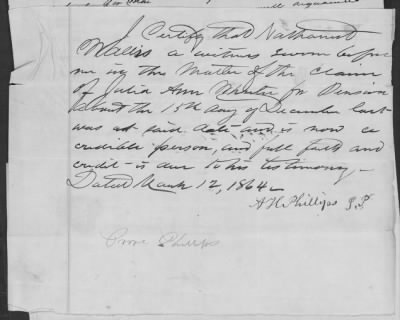 I Certify that Nathaniel
a witness sworn before
me in the Matter of the claim
of Julia Ann for Pension
about the 15th day of December last
was at said date and is now a
credible person, and full faith and
credit is due to his testimony.
Dated March 12, 1864
A H Phillips J.P.
Phillips